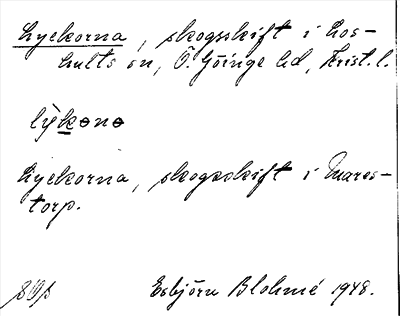 Lyckorna, skogsskift i Los-
hults sn, Ö. Göinge hd, Krist. l.
lyckorna, skogsskift i Mares-
torp.
Esbjörn Blohmé 1948.